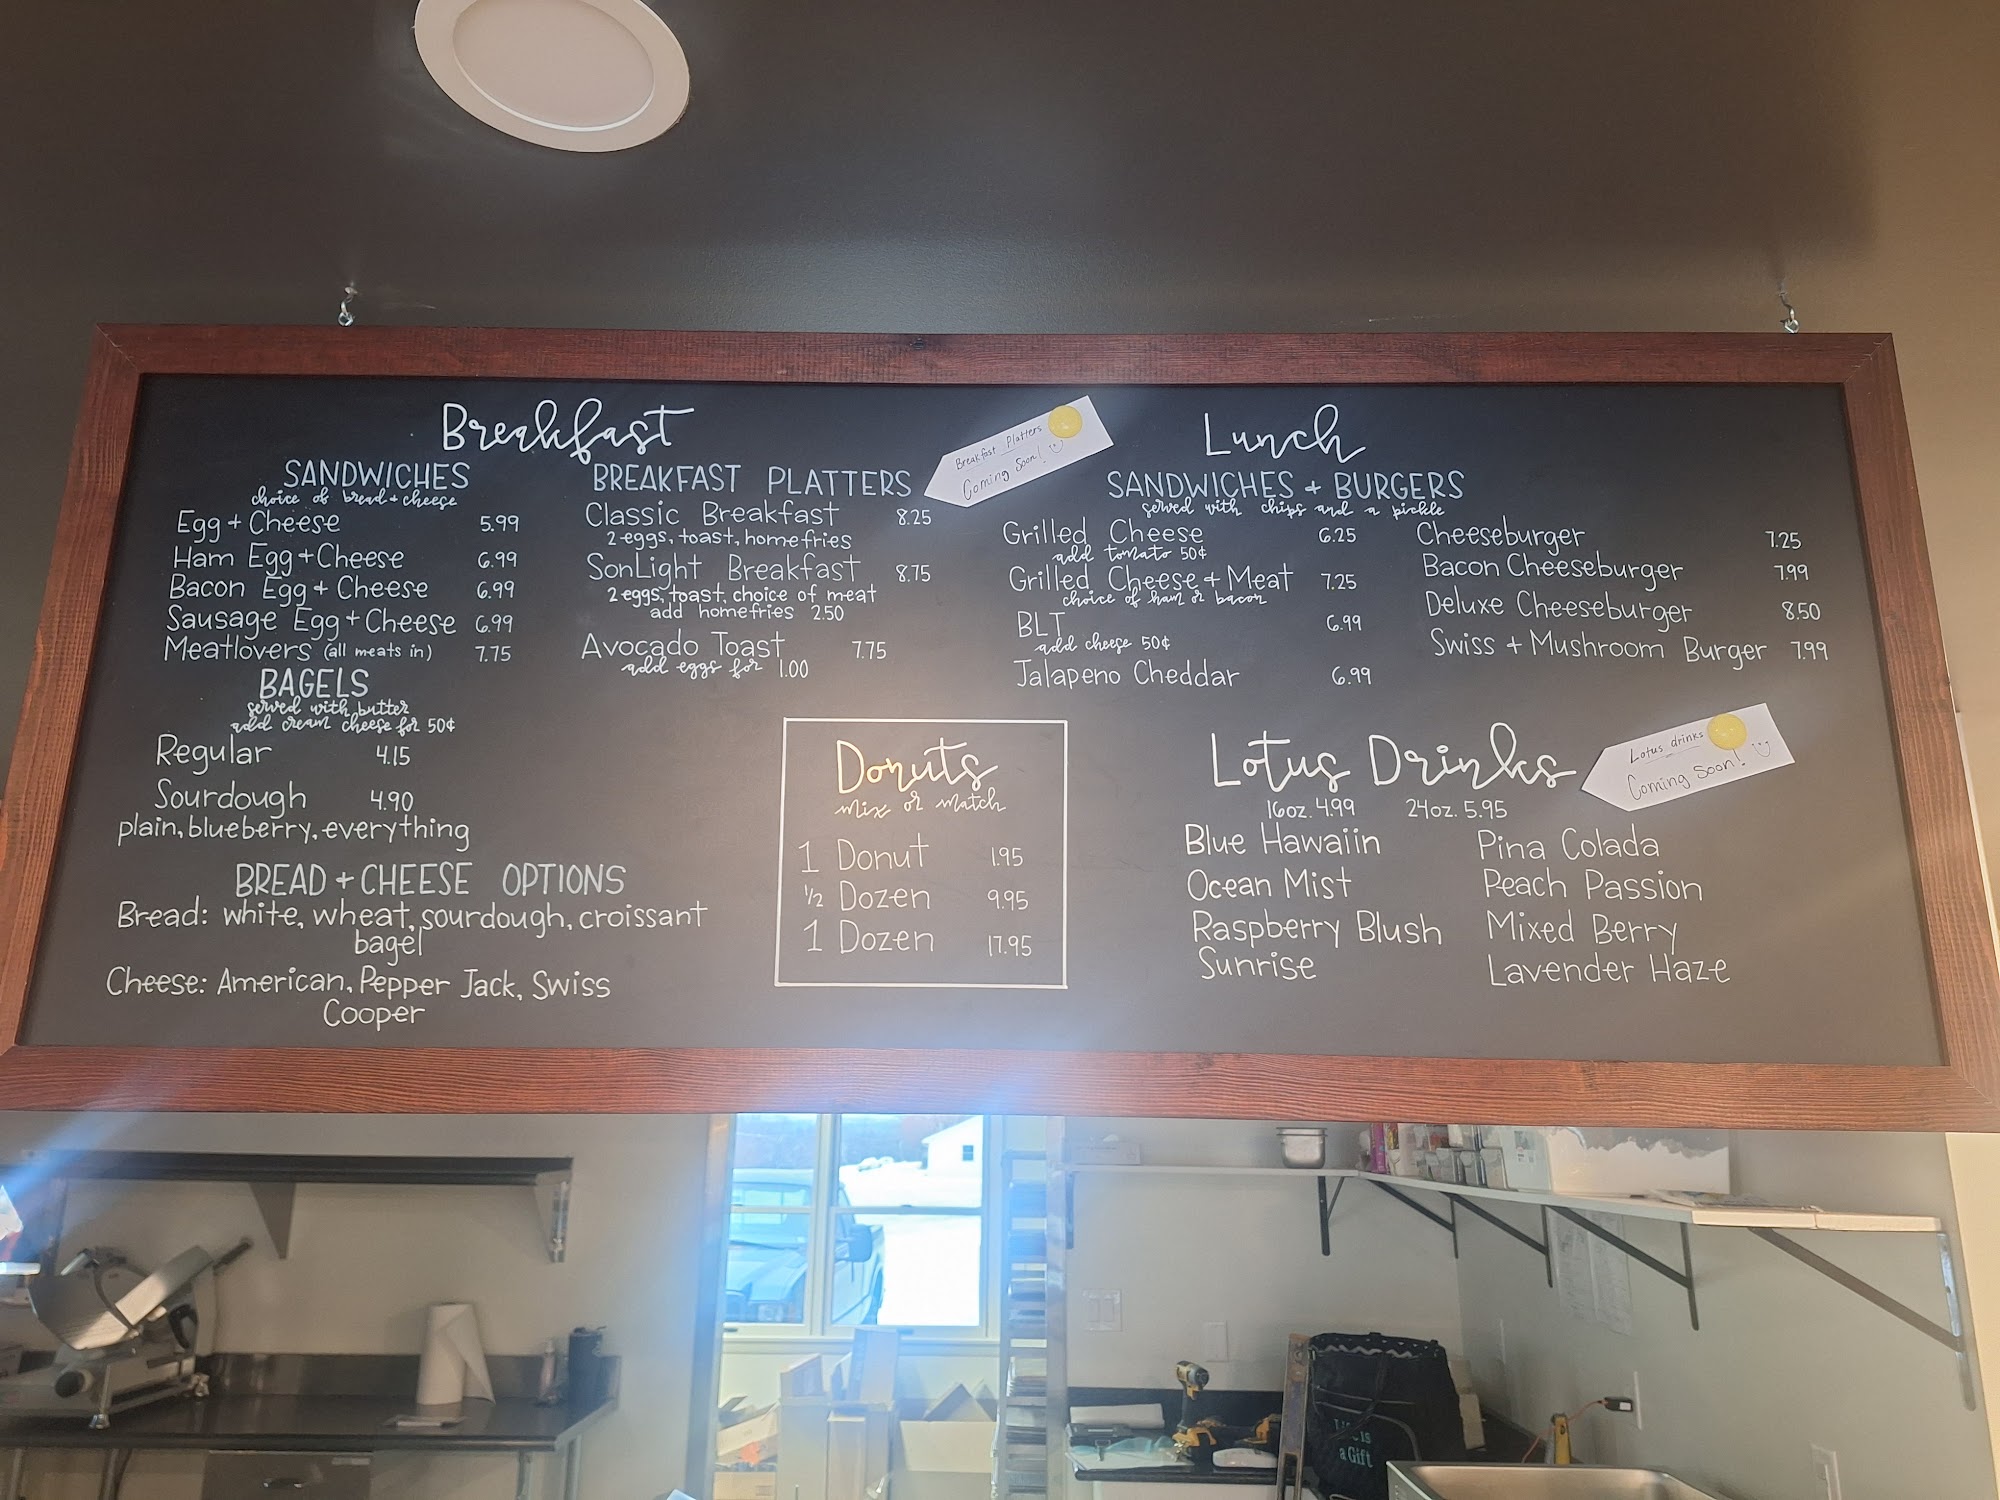 Breakfast
SANDWICHES
choice of bread + cheese
Egg + Cheese 5.99
Ham Egg + Cheese 6.99
Bacon Egg + Cheese 6.99
Sausage Egg + Cheese 6.99
Meatlovers (all meats in) 7.75
BAGELS
served with butter
add cream cheese for 50¢
Regular 4.15
Sourdough 4.90
plain, blueberry, everything
BREAD + CHEESE OPTIONS
Bread: white, wheat, sourdough, croissant
bagel
Cheese: American, Pepper Jack, Swiss
Cooper
BREAKFAST PLATTERS
Breakfast Platters
Coming Soon!
Classic Breakfast 8.25
2 eggs, toast, homefries
SonLight Breakfast 8.75
2 eggs, toast, choice of meat
add homefries 2.50
Avocado Toast 7.75
add eggs for 1.00
Donuts
mix or match
1 Donut 1.95
1/2 Dozen 9.95
1 Dozen 17.95
Lunch
SANDWICHES + BURGERS
served with chips and a pickle
Grilled Cheese 6.25
add tomato 50¢
Grilled Cheese + Meat 7.25
choice of ham or bacon
BLT 6.99
add cheese 50¢
Jalapeno Cheddar 6.99
Cheeseburger 7.25
Bacon Cheeseburger 7.99
Deluxe Cheeseburger 8.50
Swiss + Mushroom Burger 7.99
Lotus Drinks
Lotus drinks
Coming Soon!
16oz. 4.99 24oz. 5.95
Blue Hawaiin
Ocean Mist
Raspberry Blush
Sunrise
Pina Colada
Peach Passion
Mixed Berry
Lavender Haze
is
a Gift